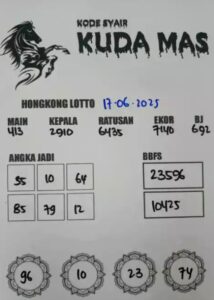 KODE SYAIR
KUDA MAS
HONGKONG LOTTO 17-06-2025
MAIN KEPALA RATUSAN EKOR BJ
413 2910 6435 7140 692
ANGKA JADI BBFS
35 10 64 23596
85 79 12 10425
96 10 23 74